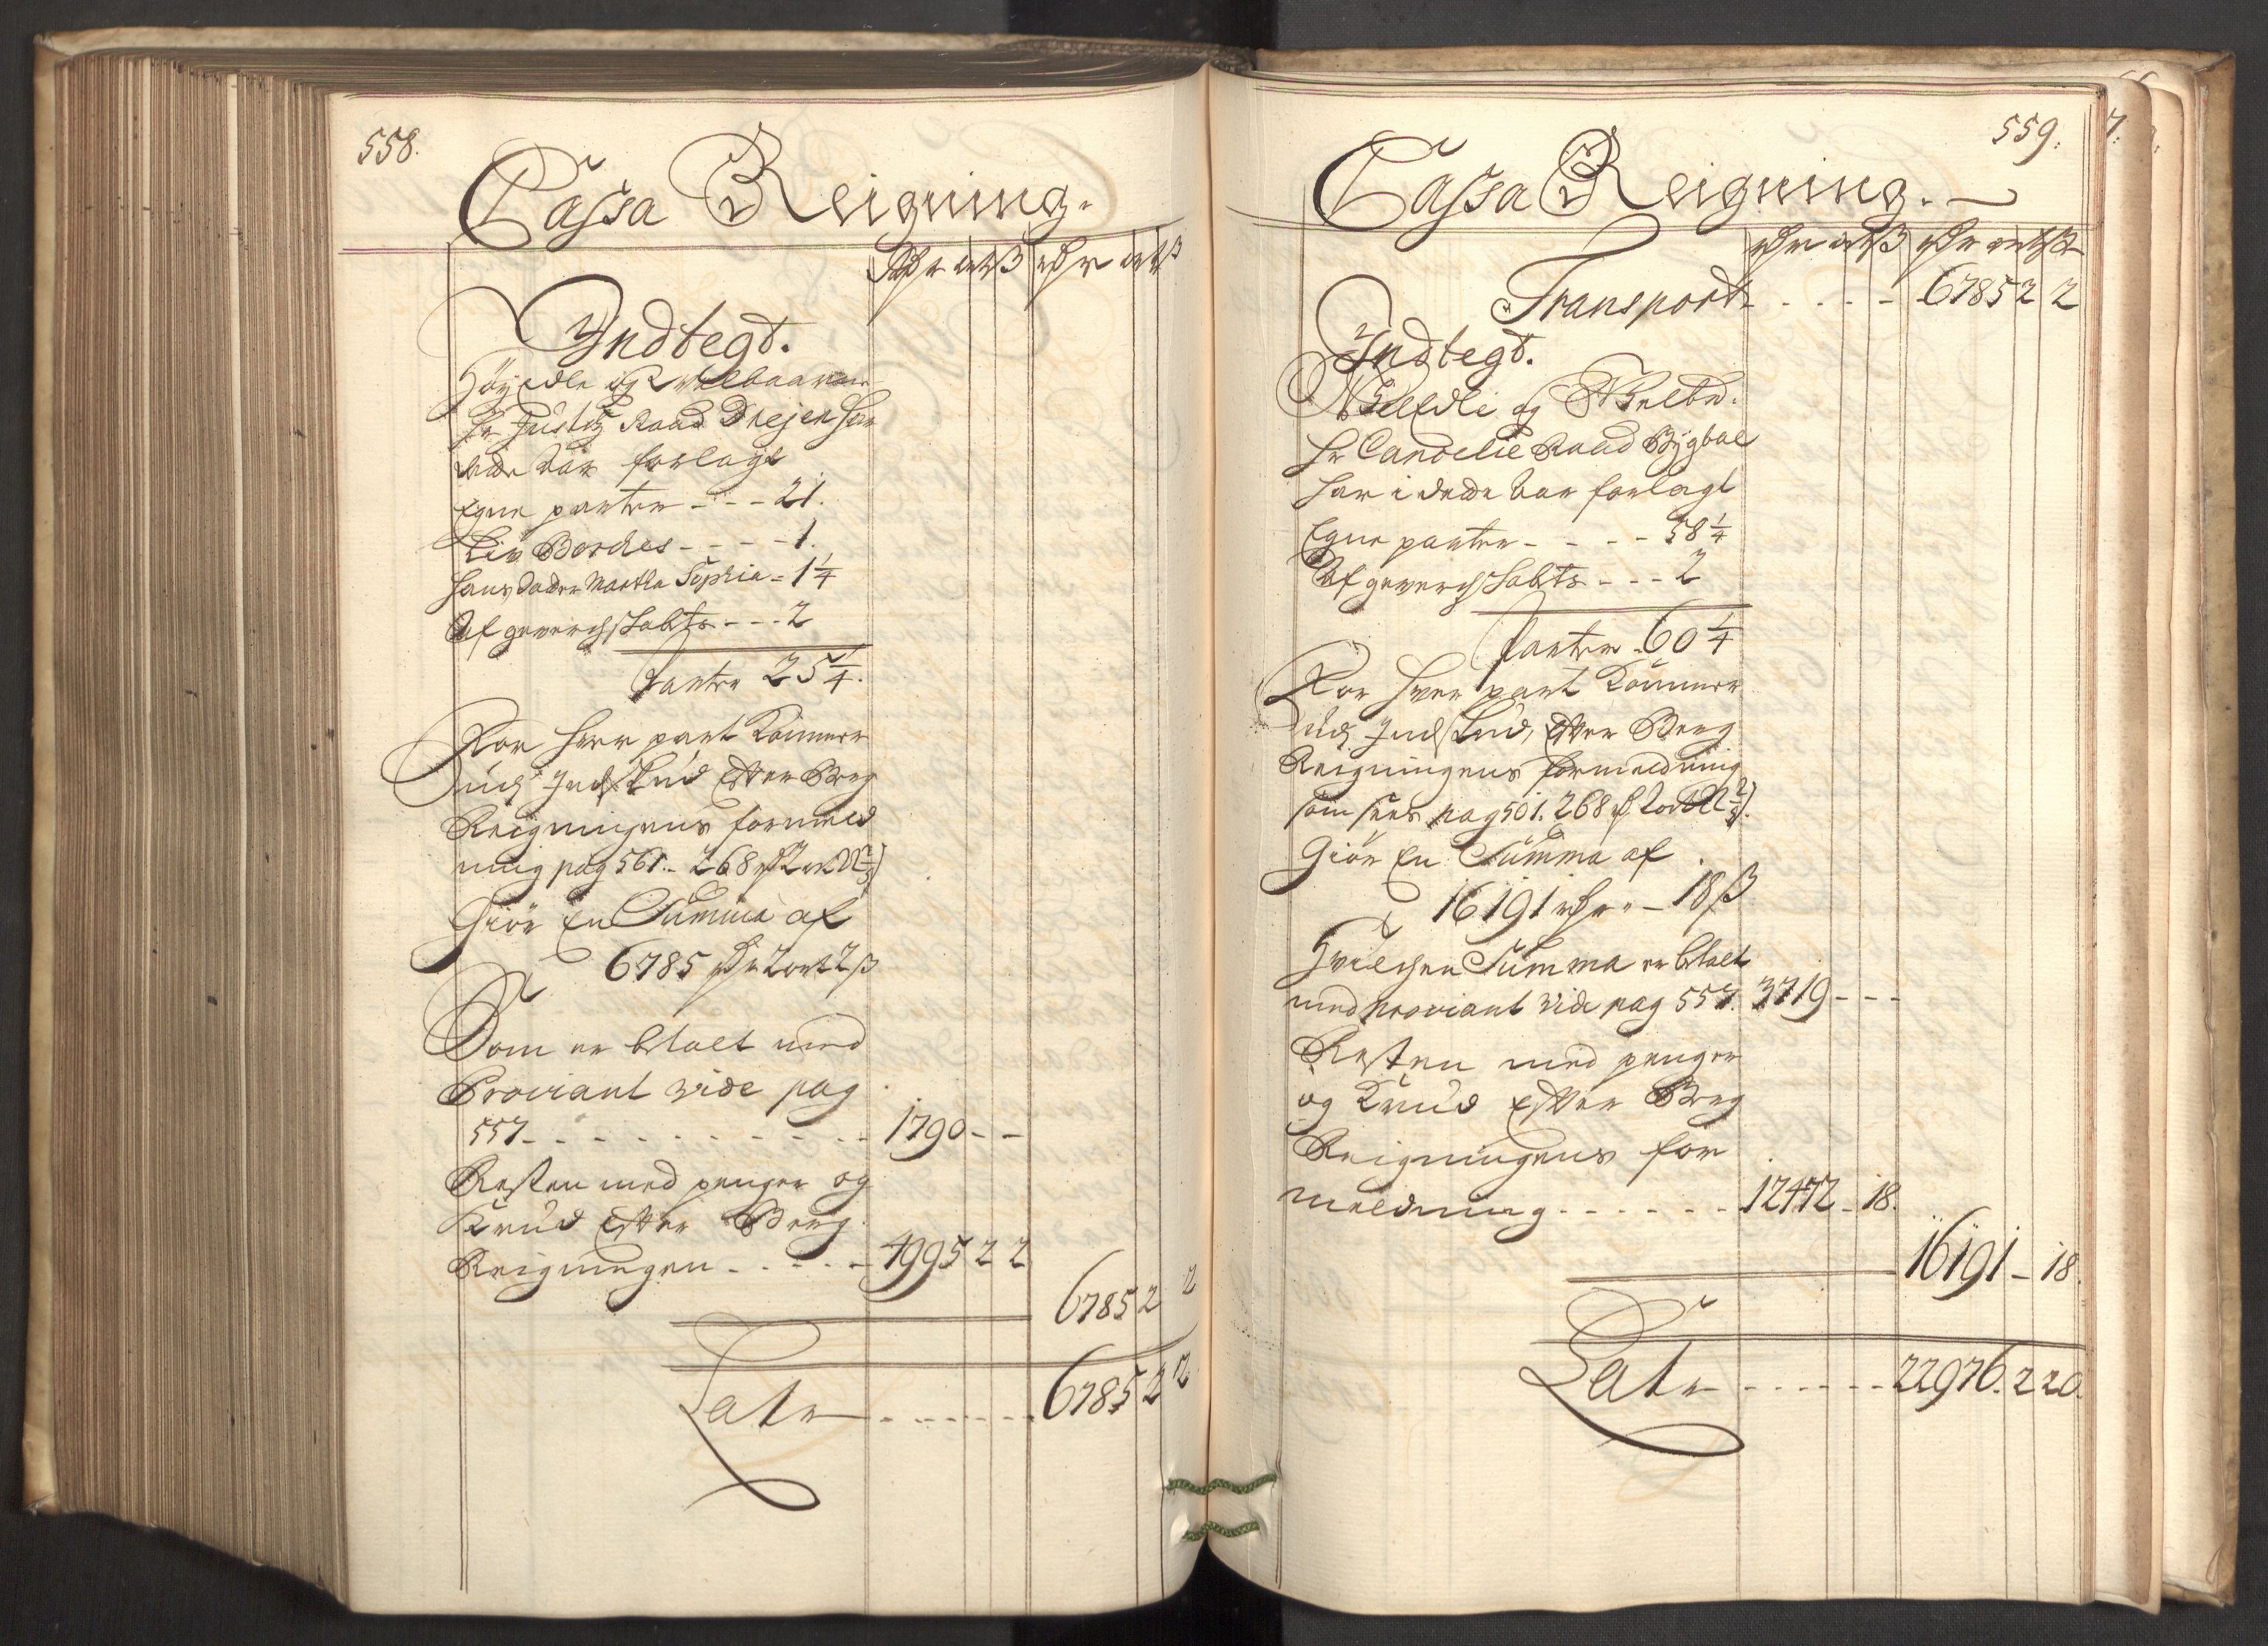 558.
Cassa Reigning.
Rdr ort ß rdr ort ß
Indtegt.
Høyædle og Velbaarne
Hr Justitz Raad Dreyer har
dette Aar forlagt
Egne parter - - - 21.
Liv Borches - - - - 1.
Hans Datter Martha Sophia - 1 1/4
Af gewerchskabts - - - 2
Parter 25 1/4.
For hver part kommer
udj Indskud Efter Berg
Reigningens formeld
ning pag 561. - 268
Giør En Summa af
6785 rdr 2 ort 2 ß
Som er betalt med
Proviant vide pag
557 - - - - - - - - - - - 1790 - -
Resten med penger og
Krud Efter Berg
Reigningen - - - - - 4995 2 2
6785 2 2
Latr - - - - - - - 6785 2 2
559.
Cassa Reigning.
rdr ort ß rdr ort ß
Transport - - - - - 6785 2 2
Indtegt.
Welædle og Welbr.
Hr Cancelie Raad Bÿgbal
har i dette Aar forlagt
Egne parter - - - - 58 1/4
Af gewerchskabts - - - 2
Parter - 60 1/4
For hver part kommer
udj Indskud, Efter Berg
Reigningens formeldning
som sees pag 561. 268
Giør En Summa af
16191 rdr - 18 ß
Hvilchen Summa er betalt
med proviant vide pag 557. 3719 - - -
Resten med penger
og Krud Efter Berg
Reigningens for
meldning - - - - - - 12472 - 18.
16191 - 18.
Latr - - - - - - 22976. 2 20.